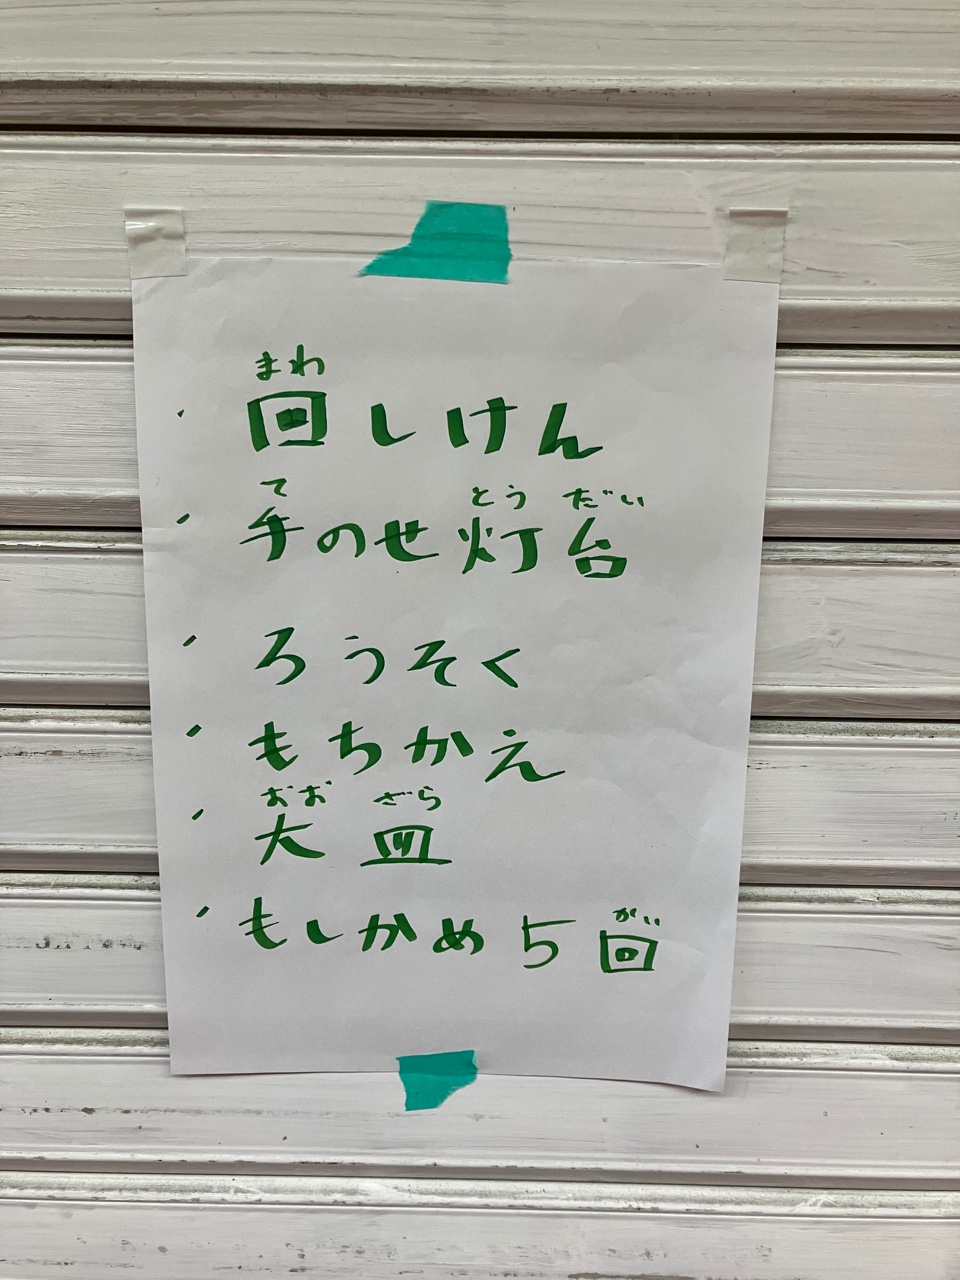 まわ
・回しけん
て とう だい
・手のせ灯台
・ろうそく
・もちかえ
おお ざら
・大皿
がい
・もしかめ5回